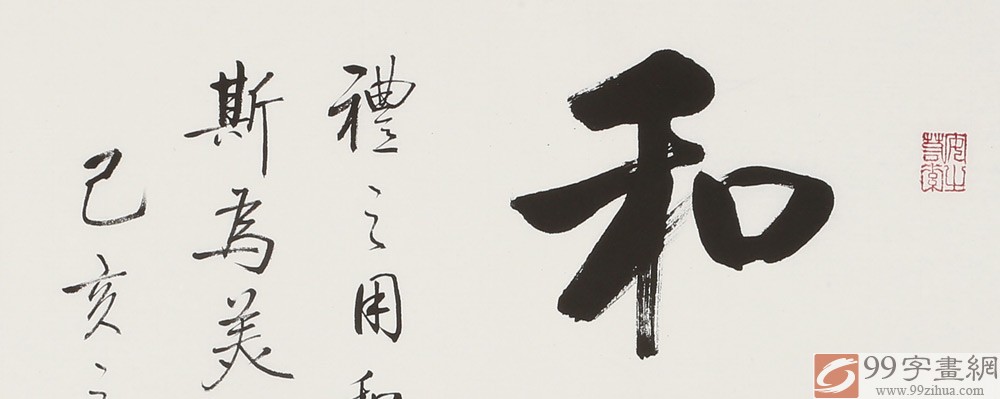 安之
若素
和
禮之用和
斯為美
己亥之
99字畫網
www.99zihua.com